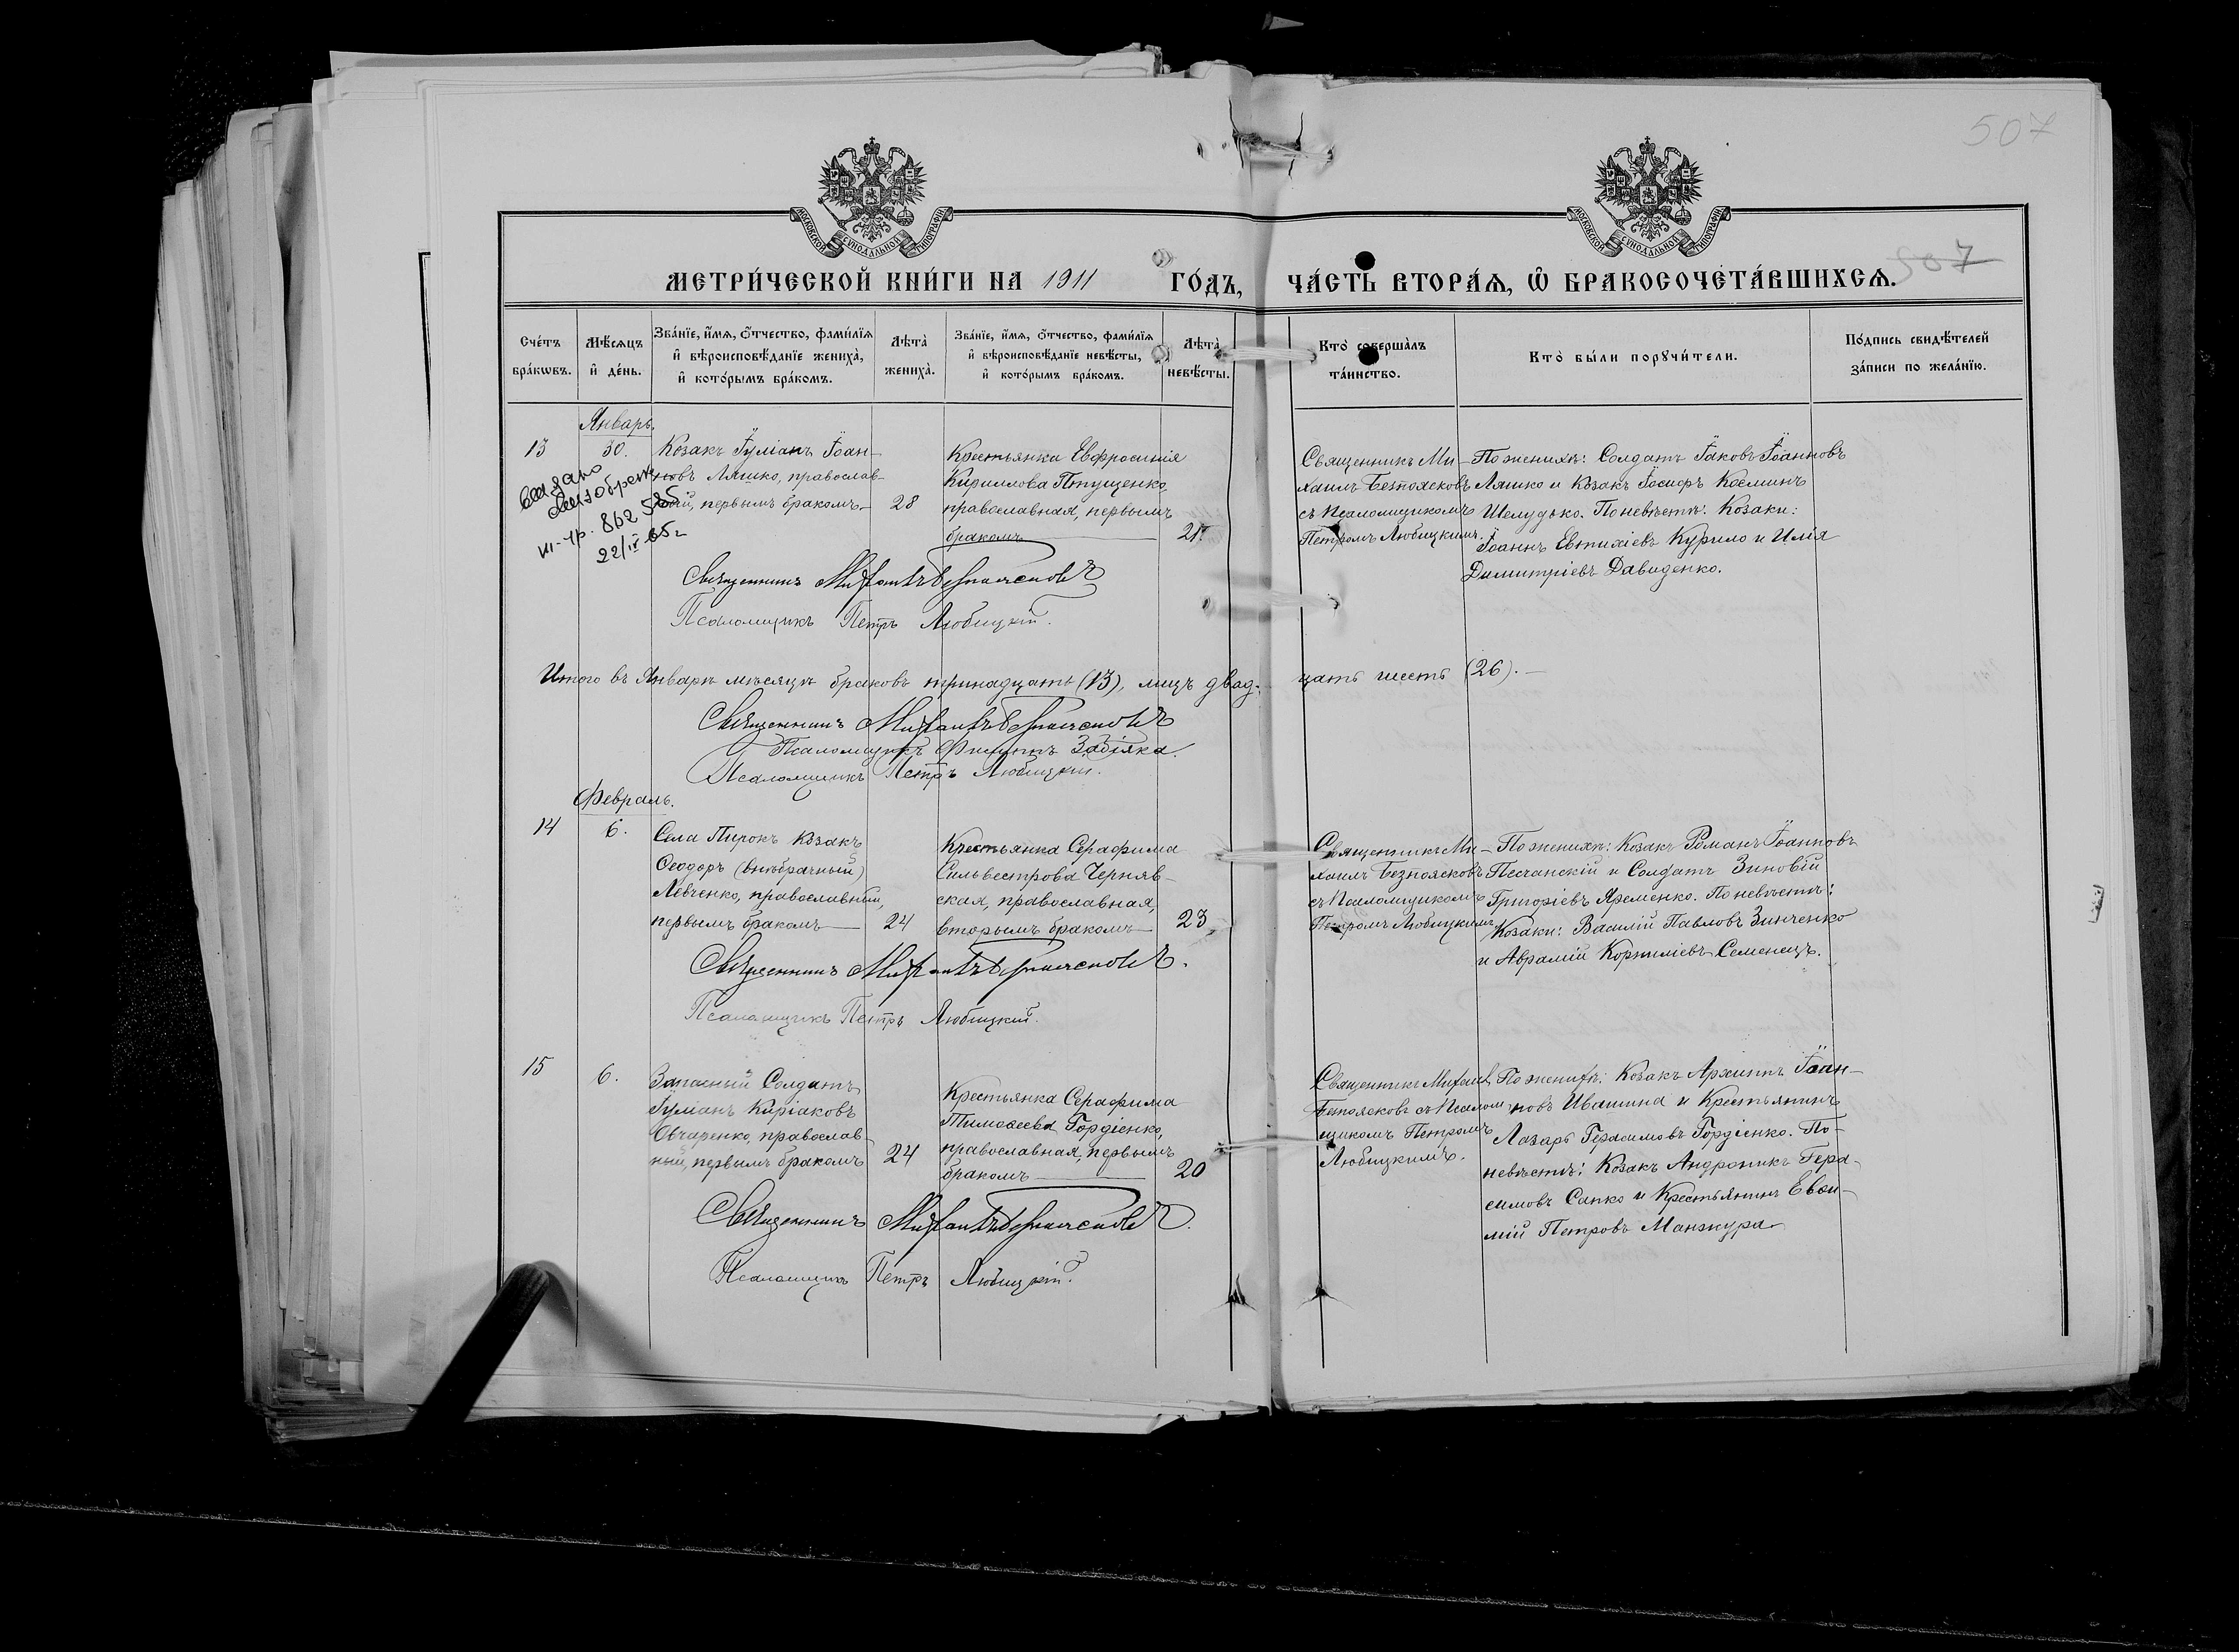 507
МОСКОВСКОЙ СѴНОДАЛЬНОЙ ТИПОГРАФІИ
МОСКОВСКОЙ СѴНОДАЛЬНОЙ ТИПОГРАФІИ
507
МЕТРИ́ЧЕСКОЙ КНИ́ГИ НА 1911 ГО́ДЪ, ЧА́СТЬ ВТОРА́Ѧ, Ѽ БРАКОСОЧЕТА́ВШИХСѦ.
Сче́тъ
бра́кѡвъ.
Мѣ́сяцъ
и҆ де́нь.
Зва́нїе, и҆́мѧ, ѻ҆́тчество, фами́лїѧ
и҆ вѣроисповѣ́данїе жениха̀,
и҆ кото́рымъ бра́комъ.
Лѣ́та
жениха̀.
Зва́нїе, и҆́мѧ, ѻ҆́тчество, фами́лїѧ
и҆ вѣроисповѣ́данїе невѣ́сты,
и҆ кото́рымъ бра́комъ.
Лѣ́та
невѣ́сты.
Кто̀ соверша́лъ
та́инство.
Кто̀ бы́ли порꙋчи́тели.
По́дпись свидѣ́телей
за́писи по жела́нїю.
Январь.
13
30.
Козакъ Іуліанъ Іоан-
новъ Ляшко, православ-
ный, первымъ бракомъ
28
Крестьянка Евфросинія
Кириллова Птущенко,
православная, первымъ
бракомъ
21.
Священникъ Ми-
хаилъ Безпоясковъ
съ Псаломщикомъ
Петромъ Любицкимъ.
По женихѣ: Солдатъ Іаковъ Іоанновъ
Ляшко и Козакъ Іосифъ Косминъ
Шелудько. По невѣстѣ: Козаки:
Іоаннъ Евтихіевъ Курило и Илія
Димитріевъ Давиденко.
862 585
22/IV 65 г
Священникъ Михаилъ Безпоясковъ
Псаломщикъ Петръ Любицкій.
Итого въ Январѣ мѣсяцѣ браковъ тринадцать (13), лицъ двад- цать шесть (26).
Священникъ Михаилъ Безпоясковъ
Псаломщикъ Филиппъ Забіяка.
Псаломщикъ Петръ Любицкій.
Февраль.
14
6.
Села Пирокъ Козакъ
Ѳеодоръ (внѣбрачный)
Левченко, православный,
первымъ бракомъ
24
Крестьянка Серафима
Сильвестрова Черняв-
ская, православная,
вторымъ бракомъ
23
Священникъ Ми-
хаилъ Безпоясковъ
съ Псаломщикомъ
Петромъ Любицкимъ
По женихѣ: Козакъ Романъ Іоанновъ
Песчанскій и Солдатъ Зиновій
Григоріевъ Яременко. По невѣстѣ:
Козаки: Василій Павловъ Зинченко
и Аврамій Корниліевъ Семенецъ.
Священникъ Михаилъ Безпоясковъ.
Псаломщикъ Петръ Любицкій.
15
6.
Запасный Солдатъ
Іуліанъ Киріаковъ
Овчаренко, православ-
ный, первымъ бракомъ
24
Крестьянка Серафима
Тимоѳеева Гордіенко,
православная, первымъ
бракомъ
20
Священникъ Михаилъ
Безпоясковъ съ Псалом-
щикомъ Петромъ
Любицкимъ.
По женихѣ: Козакъ Архиппъ Іоан-
новъ Ивашина и Крестьянинъ
Лазарь Герасимовъ Гордіенко. По-
невѣстѣ: Козакъ Андроникъ Гера-
симовъ Сапко и Крестьянинъ Евѳи-
мій Петровъ Манжура
Священникъ Михаилъ Безпоясковъ.
Псаломщикъ Петръ Любицкій.